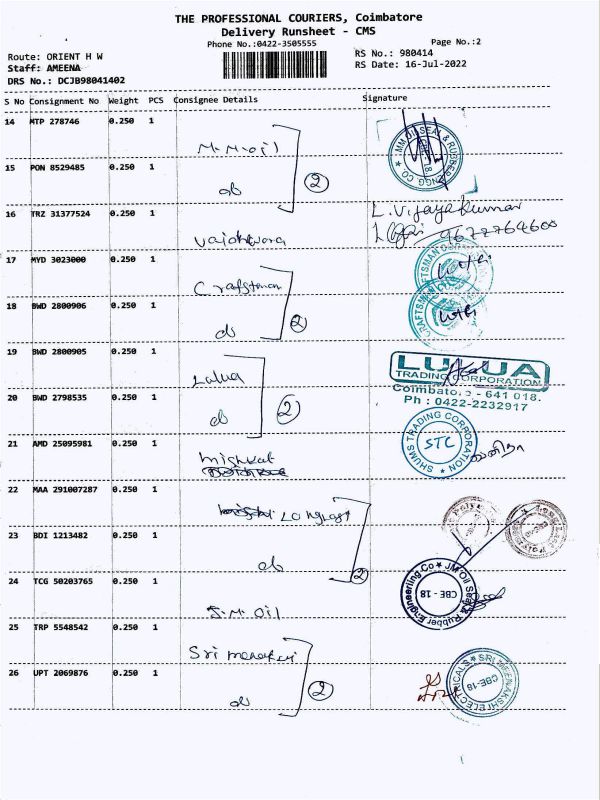 THE PROFESSIONAL COURIERS, Coimbatore
Delivery Runsheet - CMS
Phone No.:0422-3505555
Page No.:2
Route: ORIENT H W
Staff: AMEENA
DRS No.: DCJB98041402
RS No.: 980414
RS Date: 16-Jul-2022
S No Consignment No Weight PCS Consignee Details Signature
14 MTP 278746 0.250 1 M.M.oil
J.MM OIL SEAL & RUBBER ENGG. CO
15 PON 8529485 0.250 1 do 2
16 TRZ 31377524 0.250 1 L.Vijayakumar
9677764600
17 MYD 3023000 0.250 1 Craftsman
18 BWD 2800906 0.250 1 do 2
19 BWD 2800905 0.250 1 Lulua
LULUA
TRADING CORPORATION
Coimbatore - 641 018.
Ph : 0422-2232917
20 BWD 2798535 0.250 1 do 2
21 AMD 25095981 0.250 1 Mishkat
SHUMS TRADING CORPORATION
STC
22 MAA 291007287 0.250 1
23 BDI 1213482 0.250 1 do 2
24 TCG 50203765 0.250 1 J.M.OIL
JM Oil Seal & Rubber Engineering Co
CBE - 18
25 TRP 5548542 0.250 1 Sri
26 UPT 2069876 0.250 1 do 2
SRI MEENAKSHI ELECTRICALS
CBE-18